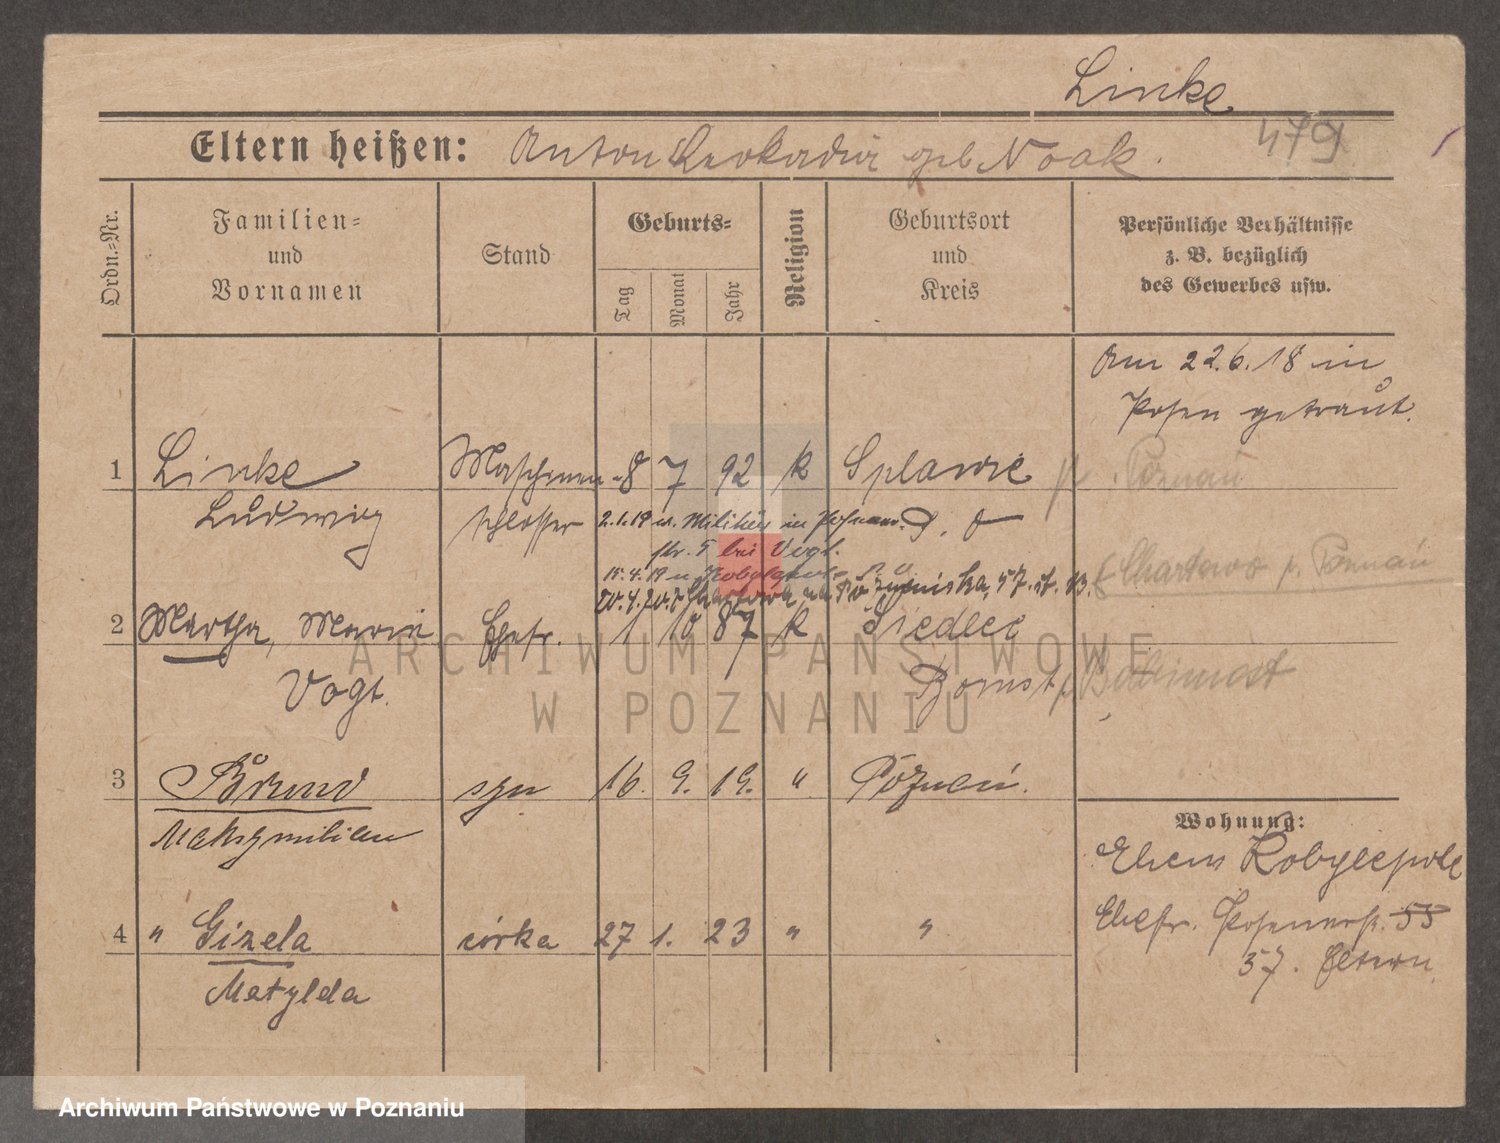 Linke
Eltern heißen: Anton Leokadia geb Noak.
479
Ordn.=Nr.
Familien=
und
Vornamen
Stand
Geburts=
Tag
Monat
Jahr
Religion
Geburtsort
und
Kreis
Persönliche Verhältnisse
z. B. bezüglich
des Gewerbes usw.
Am 22.6.18 in
Posen getraut.
1 Linke Maschinen- 8 7 92 k Splawie p. Poznań
Ludwig schlosser 2.1.19 u. Militär in
str. 5 bei Vogt.
Chartowo p. Poznań
2 Martha, Maria Ehefr. 1 10 87 k Siedlec
Vogt. Bomst p. Babimost
3 Brund syn 16. 9. 19. " Poznań.
Maksymilian
Wohnung:
Ehem Kobylepole
4 " Gizela córka 27 1. 23 " "
Ehefr. Posenerstr. 55
Matylda
57. Eltern
ARCHIWUM PAŃSTWOWE
W POZNANIU
Archiwum Państwowe w Poznaniu